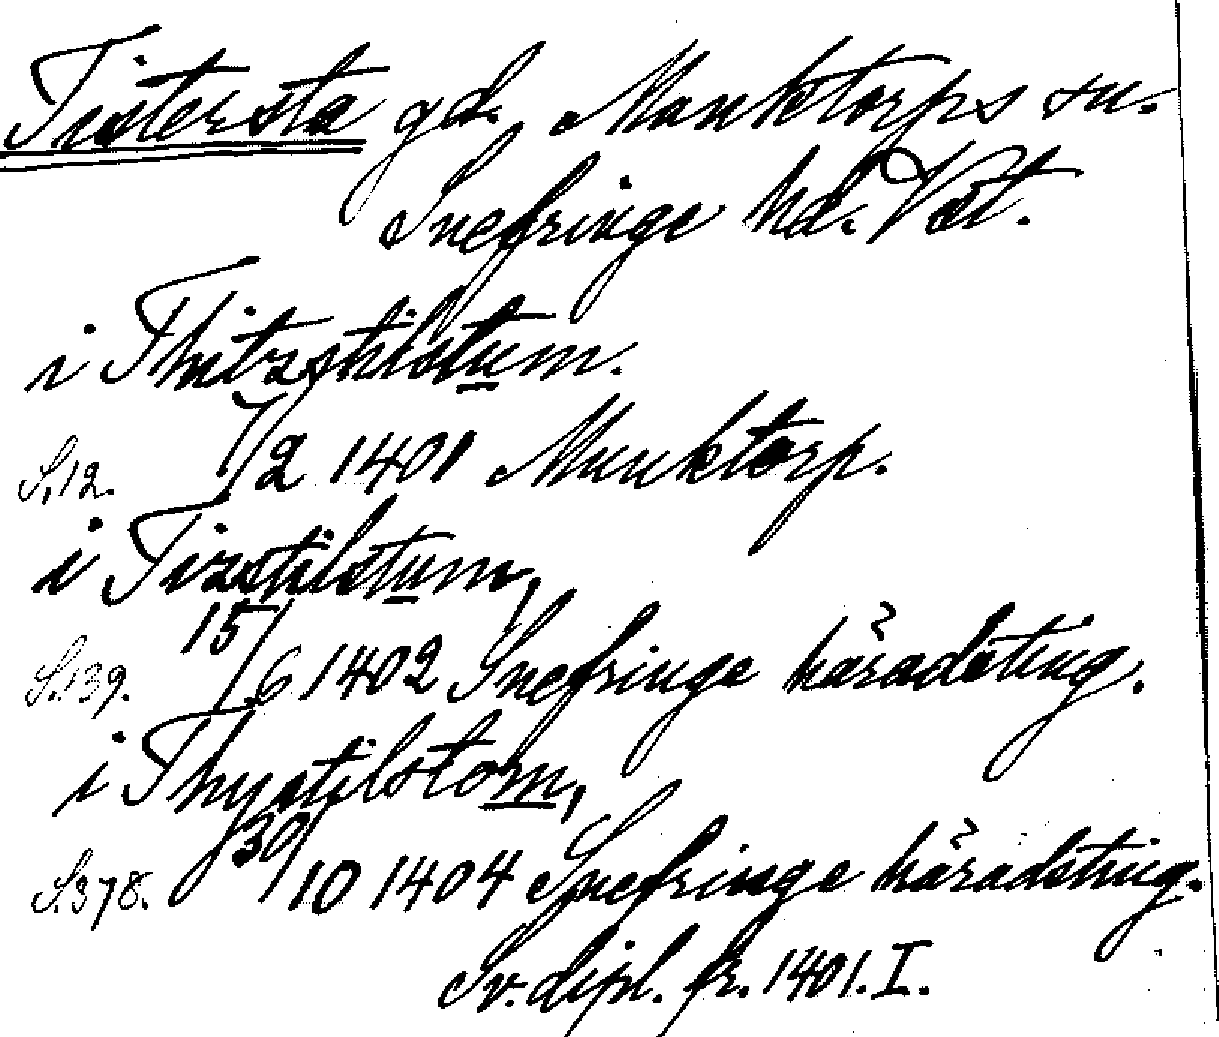 Tistersta gd. Munktorps sn.
Snefringe hd. Väst.
i Thitzstilstum.
S. 12. 7/2 1401 Munktorp.
i Tizstilstum,
S. 139. 15/6 1402 Snefringe häradsting.
i Thystilstom,
S. 378. 30/10 1404 Snefringe häradsting.
Sv. dipl. fr. 1401. I.